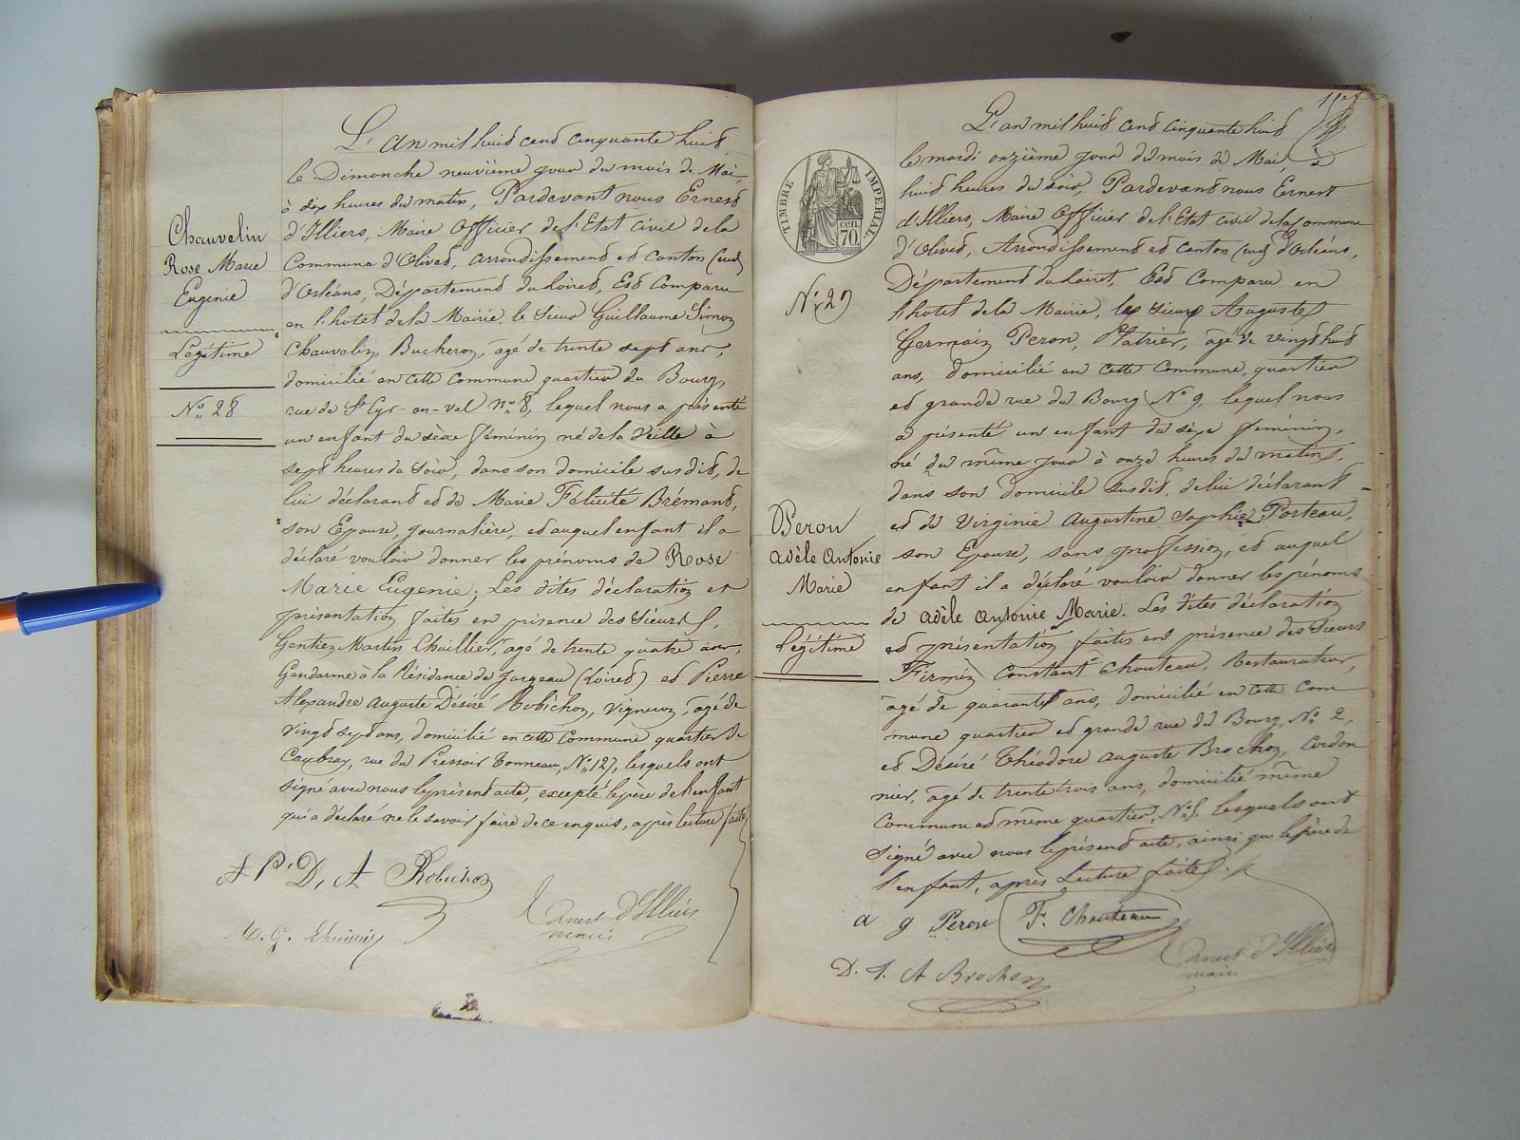 L'An mil huit cent cinquante huit,
le Dimanche neuvième jour du mois de Mai,
à dix heures du matin, Pardevant nous Ernest
d'Illiers, Maire Officier de l'Etat civil de la
Commune d'Olivet, arrondissement et canton (sud)
d'Orléans, Département du Loiret, Est Comparu
en l'hotel de la Mairie, le Sieur Guillaume Simon
Chauvelin, Bucheron, agé de trente sept ans,
domicilié en cette Commune quartier du Bourg,
rue de St Cyr-en-val no 8, lequel nous a présenté
un enfant du sèxe féminin né de la Veille à
sept heures du Soir, dans son domicile susdit, de
lui déclarant et de Marie Félicité Brémant,
son Epouse, journalière, et auquel enfant il a
déclaré vouloir donner les prénoms de Rose
Marie Eugenie; Les dites déclaration et
présentation faites en présence des Sieurs
Gentien Martin Chuillier, agé de trente quatre ans,
Gendarme à la Résidence de Jargeau (Loiret) et Pierre
Alexandre Auguste Désiré Robichon, vigneron, agé de
vingt sept ans, domicilié en cette Commune quartier de
Caubray, rue du Pressoir Tonneau, No 127, lesquels ont
signé avec nous le présent acte, excepté le père de l'enfant
qui a déclaré ne le savoir faire de ce enquis, après lecture faite
Chauvelin
Rose Marie
Eugenie
Légitime
No 28
A P. D, A Robichon
Ernest d'Illiers
maire
M. G.
L'an mil huit cent cinquante huit
le mardi onzième jour du mois de Mai, à
huit heures du soir, Pardevant nous Ernest
d'Illiers, Maire Officier de l'Etat civil de la Commune
d'Olivet, Arrondissement et Canton (sud) d'Orléans,
Département du Loiret, Est Comparu en
l'hotel de la Mairie, le Sieur Auguste
Germain Peron, Platrier, agé de vingt huit
ans, domicilié en cette Commune, quartier
et grande rue du Bourg No 9, lequel nous
a présenté un enfant du sèxe féminin,
né du même jour à onze heures du matin,
dans son domicile susdit, de lui déclarant
et de Virginie Augustine Sophie Porteau,
son Epouse, sans profession, et auquel
enfant il a déclaré vouloir donner les prénoms
de Adèle Antonie Marie. Les dites déclaration
et présentation faites en présence des Sieurs
Firmin Constant Chouteau, Restaurateur,
agé de quarante ans, domicilié en cette Com-
mune quartier et grande rue du Bourg, No 2,
et Désiré Théodore Auguste Brochon, Cordon
nier, agé de trente trois ans, domicilié même
Commune et même quartier, lesquels ont
Signé avec nous le présent acte, ainsi que le père de
l'enfant, après Lecture faite.
TIMBRE IMPERIAL
CEN.
70
No 29
Peron
Adèle Antonie
Marie
Légitime
a g Peron
F. Chouteau
Ernest d'Illiers
maire
D. T. A Brochon